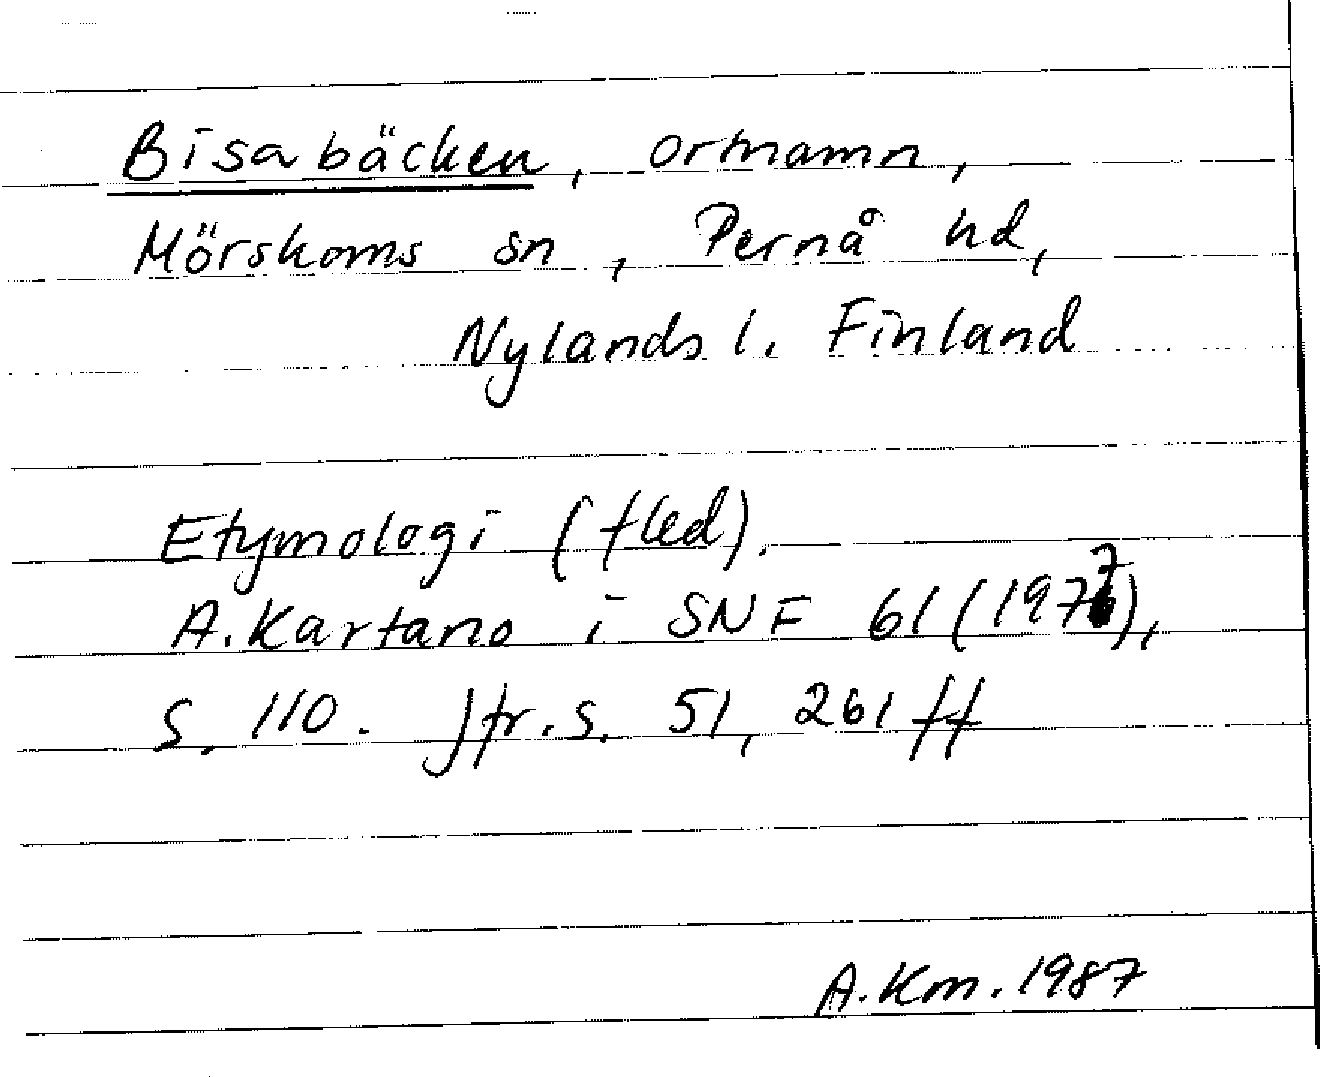 Bisabäcken, ortnamn,
Mörskoms sn, Pernå hd,
Nylands l. Finland
Etymologi (fled).
A. Kartano i SNF 61 (1977),
S. 110. Jfr. s. 51, 261 ff
A. Km. 1987